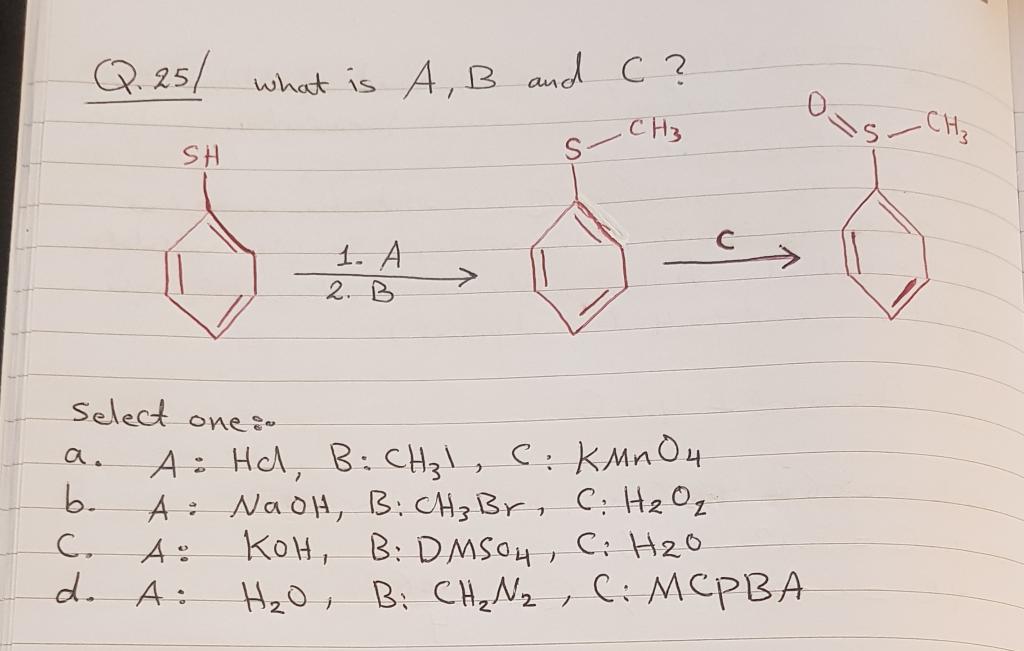 Q.25/ what is A, B and C?
SH
S-CH3
O=S-CH3
1. A
2. B
C
Select one:-
a. A: HCl, B: CH3I, C: KMnO4
b. A: NaOH, B: CH3Br, C: H2O2
C. A: KOH, B: DMSO4, C: H2O
d. A: H2O, B: CH2N2, C: MCPBA